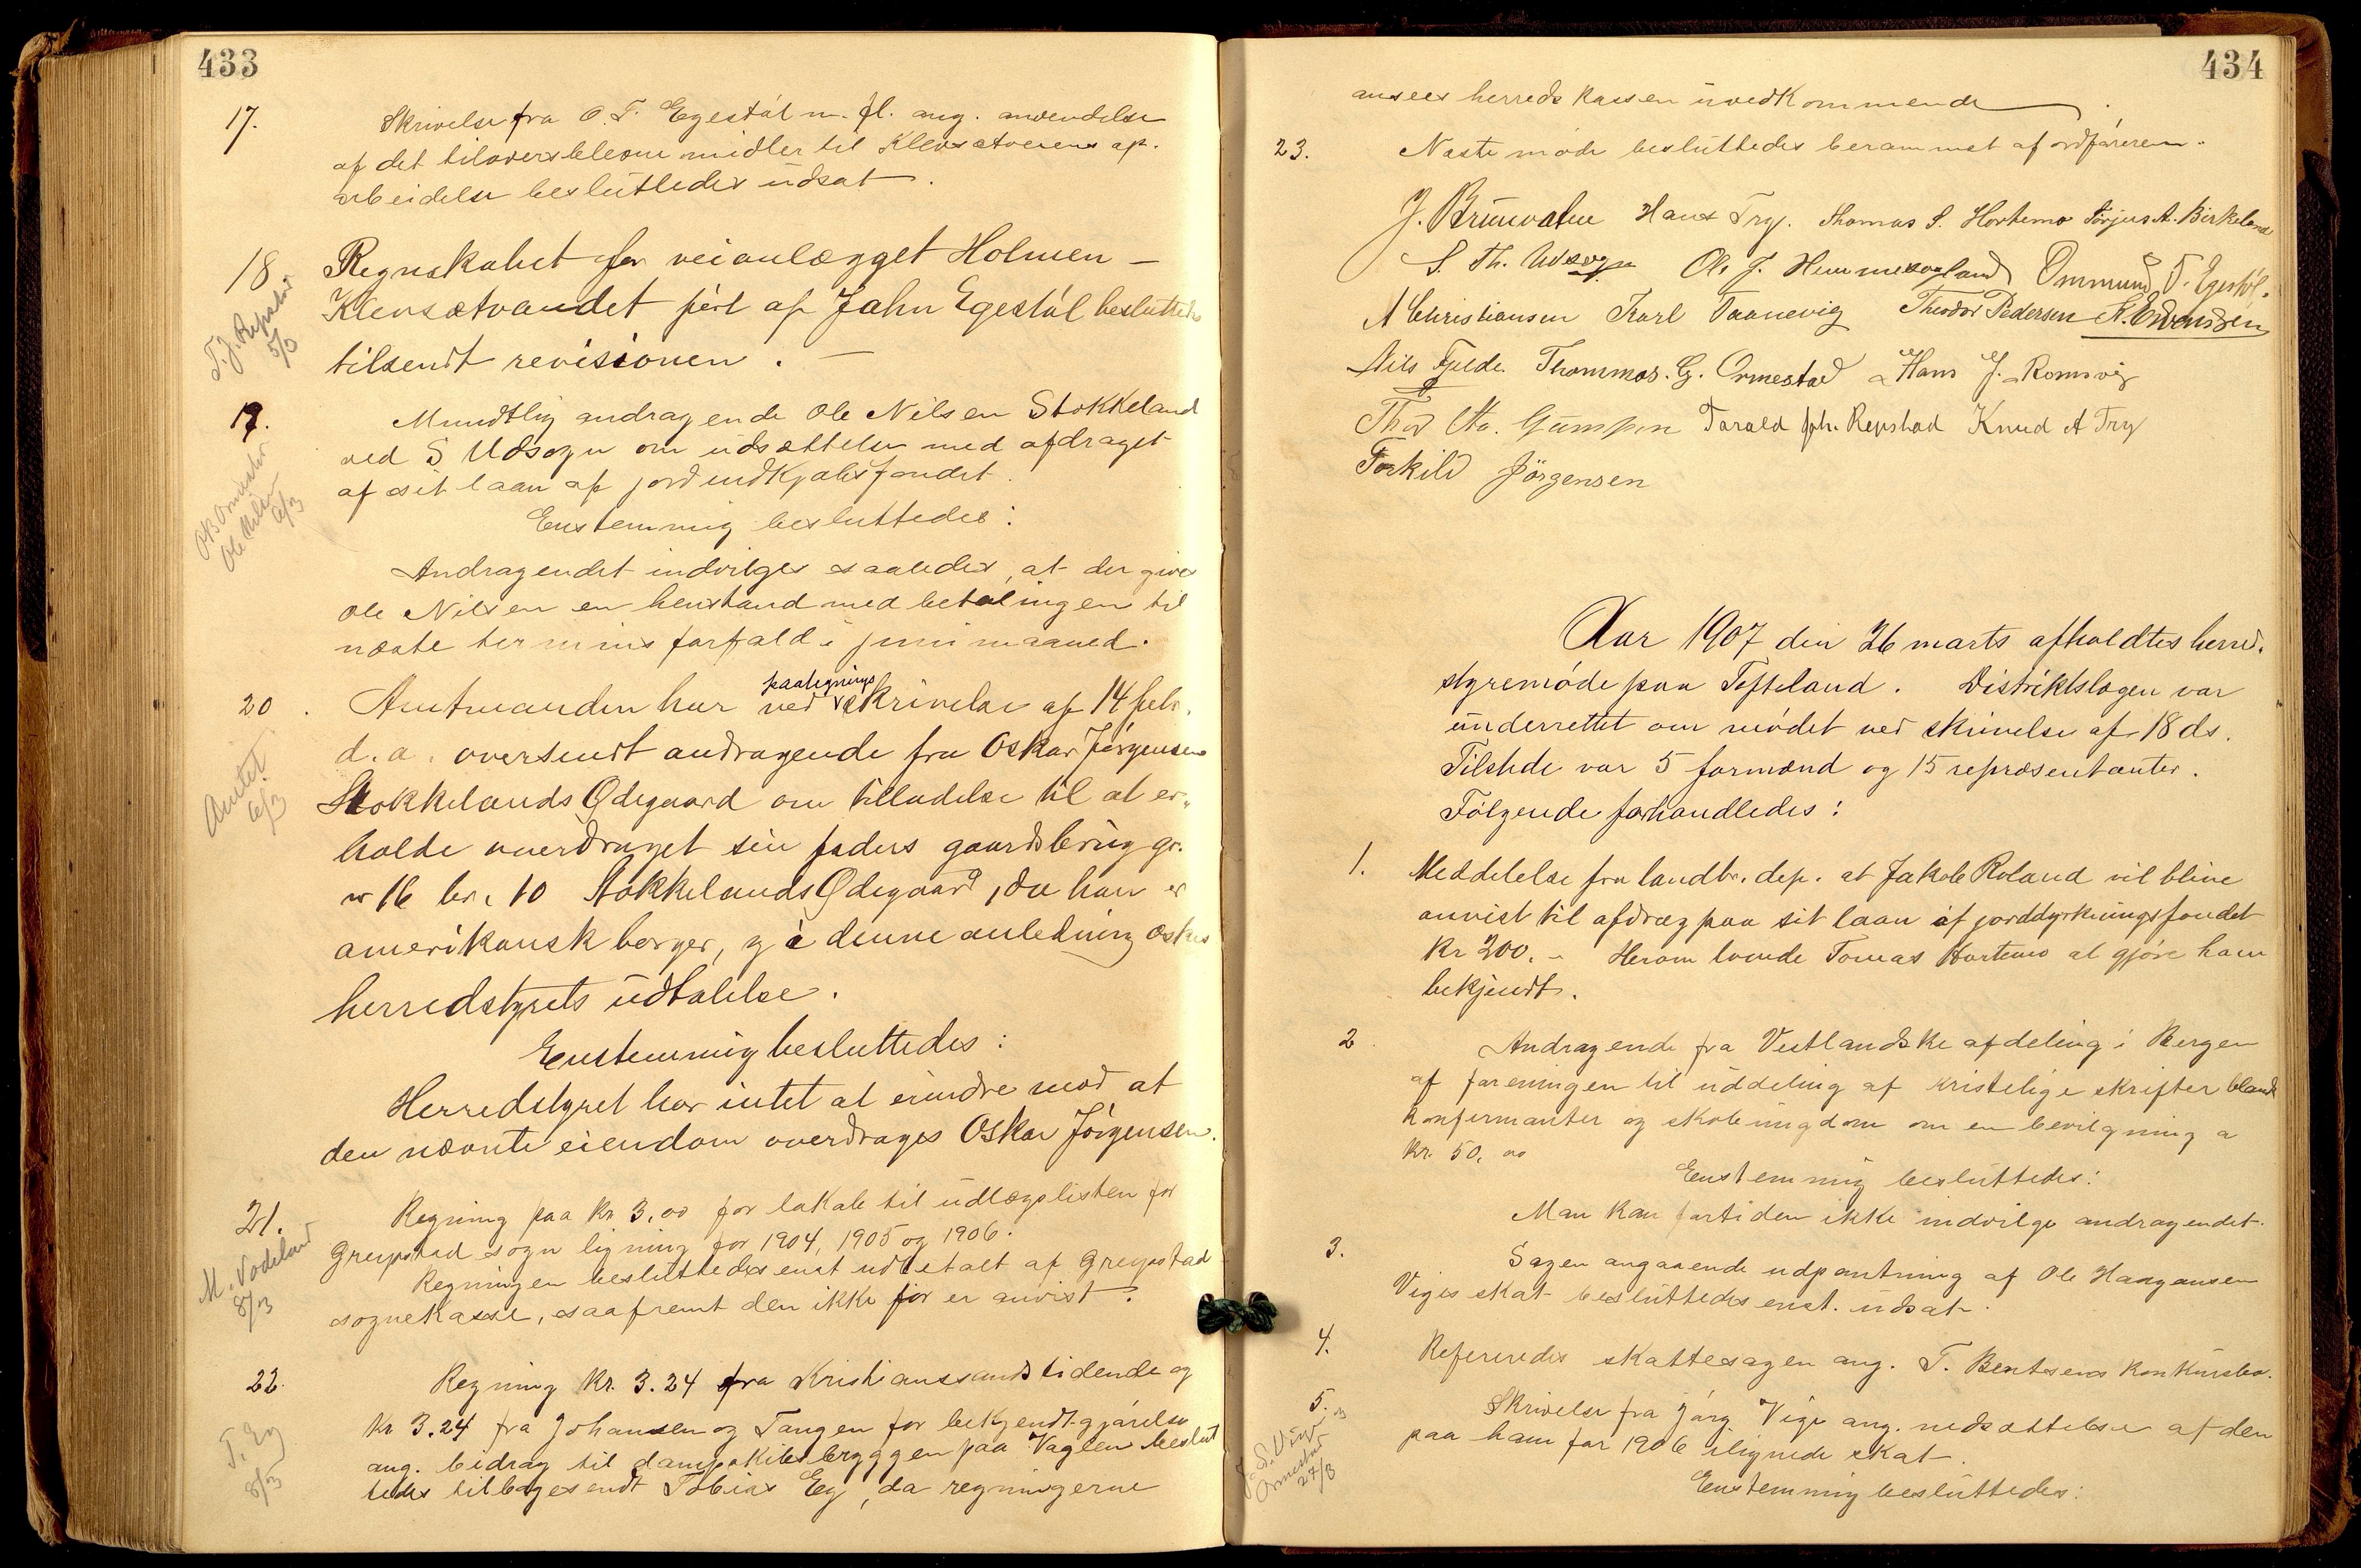 433
17.
Skrivelse fra O. T. Egestøl m. fl. ang. anvendelse
af det tiloversblevne midler til Klevsætveiens op-
arbeidelse besluttedes udsat.
18.
Regnskabet for veianlægget Holmen –
Klevsætvandet ført af Jahn Egestøl besluttedes
tilsendt revisionen. –
T. J. Repstad
5/3
19.
Mundtlig andragende Ole Nilsen Stokkeland
ved S Udsogn om udsættelse med afdraget
af sit laan af jordindkjøbsfondet.
Enstemmig besluttedes:
O B Ormestad
Ole Nilsen
6/3
Andragendet indvilges saaledes, at der gives
Ole Nilsen en henstand med betalingen til
næste termins forfald i juni maaned.
20.
Amtmanden har ved paategnings skrivelse af 14 febr.
d. a. oversendt andragende fra Oskar Jørgensen
Stokkelands Ødegaard om tilladelse til at er-
holde overdraget sin faders gaardsbrug gr.
nr 16 br. 10 Stokkelands Ødegaard, da han er
amerikansk borger, og i denne anledning æskes
herredstyrets udtalelse.
Amtet
6/3
Enstemmig besluttedes:
Herredstyret har intet at erindre mod at
den nævnte eiendom overdrages Oskar Jørgensen.
21.
Regning paa kr 3,00 for lokale til udlægslisten for
Greipstad sogn ligning for 1904, 1905 og 1906.
Regningen besluttedes enst udbetalt af Greipstad
sognekasse, saafremt den ikke før er anvist.
M. Vodeland
8/3
22.
Regning kr. 3.24 fra Kristianssands tidende og
kr 3.24 fra Johansen og Tangen for bekjendtgjørelse
ang. bidrag til dampskibsbryggen paa Vagsen beslut
tedes tilbagesendt Tobias Eg, da regningerne
T. Eg
8/3
434
ansees herredskassen uvedkommende.
23.
Næste møde besluttedes berammet af ordføreren.
J. Brunvatne Hans Try. Thomas S. Hortemo Torjus A. Birkeland
S. Th. Udsogn Ole J. Hummesogland Ommund T. Egestøl.
A Christiansen Karl Taanevig Theodor Pedersen A. Evensen
Nils Fjelde. Thommas. G. Ormestad Hans J. Romsvig
Thor Gumpen Tarald Joh. Repstad Knud A Try
Torkild Jörgensen
Aar 1907 den 26 marts afholdtes herred.
styremøde paa Tofteland. Distriktslægen var
underrettet om mødet ved skrivelse af 18 ds.
Tilstede var 5 formænd og 15 repræsentanter.
Følgende forhandledes:
1.
Meddelelse fra landbr. dep. at Jakob Roland vil blive
anvist til afdrag paa sit laan af jorddyrkningsfondet
kr 200. – Herom lovede Tomas Hortemo at gjøre ham
bekjendt.
2
Andragende fra Vestlandske afdeling i Bergen
af foreningen til uddeling af kristelige skrifter bland
konfirmanter og skoleungdom om en bevilgning a
kr. 50, 00
Enstemmig besluttedes:
Man kan fortiden ikke indvilge andragendet.
3.
Sagen angaaende udpantning af Ole Haagansen
Viges skat besluttedes enst. udsat.
4.
Refereredes skattesagen ang. T. Bentsens konkursbo.
5.
Skrivelse fra Jørg Vige ang. nedsættelse af den
paa ham for 1906 ilignede skat.
Enstemmig besluttedes:
J. S. Vige og
Ormestad
27/3